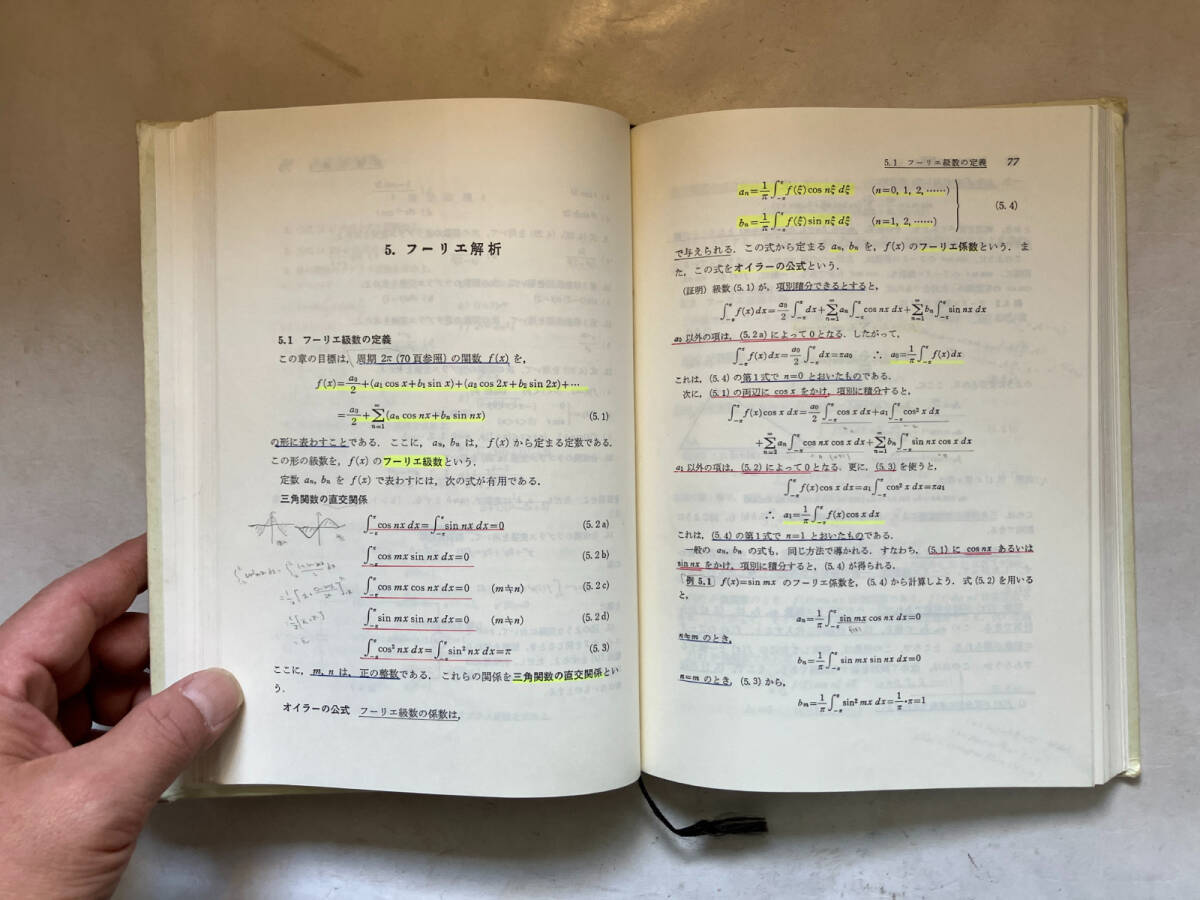 5. フーリエ解析
5.1 フーリエ級数の定義
この章の目標は,周期 2π (70頁参照) の関数 f(x) を,
f(x)=a0/2+(a1 cos x+b1 sin x)+(a2 cos 2x+b2 sin 2x)+…
=a0/2+∑_{n=1}^{∞}(an cos nx+bn sin nx) (5.1)
の形に表わすことである.ここに, an, bn は, f(x) から定まる定数である.
この形の級数を, f(x) のフーリエ級数という.
定数 an, bn を f(x) で表わすには,次の式が有用である.
三角関数の直交関係
∫_{-π}^{π} cos nx dx=∫_{-π}^{π} sin nx dx=0 (5.2a)
∫_{-π}^{π} cos mx sin nx dx=0 (5.2b)
∫_{-π}^{π} cos mx cos nx dx=0 (m≒n) (5.2c)
∫_{-π}^{π} sin mx sin nx dx=0 (m≒n) (5.2d)
∫_{-π}^{π} cos² nx dx=∫_{-π}^{π} sin² nx dx=π (5.3)
ここに, m, n は,正の整数である.これらの関係を三角関数の直交関係とい
う.
オイラーの公式 フーリエ級数の係数は,
5.1 フーリエ級数の定義 77
an=1/π ∫_{-π}^{π} f(ξ) cos nξ dξ (n=0, 1, 2, ……)
(5.4)
bn=1/π ∫_{-π}^{π} f(ξ) sin nξ dξ (n=1, 2, ……)
で与えられる.この式から定まる an, bn を, f(x) のフーリエ係数という.ま
た,この式をオイラーの公式という.
(証明) 級数 (5.1) が,項別積分できるとすると,
∫_{-π}^{π} f(x) dx=a0/2 ∫_{-π}^{π} dx+∑_{n=1}^{∞} an ∫_{-π}^{π} cos nx dx+∑_{n=1}^{∞} bn ∫_{-π}^{π} sin nx dx
a0 以外の項は, (5.2a) によって 0 となる.したがって,
∫_{-π}^{π} f(x) dx=a0/2 ∫_{-π}^{π} dx=πa0 ∴ a0=1/π ∫_{-π}^{π} f(x) dx
これは, (5.4) の第1式で n=0 とおいたものである.
次に, (5.1) の両辺に cos x をかけ,項別に積分すると,
∫_{-π}^{π} f(x) cos x dx=a0/2 ∫_{-π}^{π} cos x dx+a1 ∫_{-π}^{π} cos² x dx
+∑_{n=2}^{∞} an ∫_{-π}^{π} cos nx cos x dx+∑_{n=1}^{∞} bn ∫_{-π}^{π} sin nx cos x dx
a1 以外の項は, (5.2) によって 0 となる.更に, (5.3) を使うと,
∫_{-π}^{π} f(x) cos x dx=a1 ∫_{-π}^{π} cos² x dx=πa1
∴ a1=1/π ∫_{-π}^{π} f(x) cos x dx
これは, (5.4) の第1式で n=1 とおいたものである.
一般の an, bn の式も,同じ方法で導かれる.すなわち, (5.1) に cos nx あるいは
sin nx をかけ,項別に積分すると, (5.4) が得られる.
例 5.1 f(x)=sin mx のフーリエ係数を, (5.4) から計算しよう.式 (5.2) を用いる
と,
an=1/π ∫_{-π}^{π} sin mx cos nx dx=0
n≒m のとき,
bn=1/π ∫_{-π}^{π} sin mx sin nx dx=0
n=m のとき, (5.3) から,
bm=1/π ∫_{-π}^{π} sin² mx dx=1/π・π=1